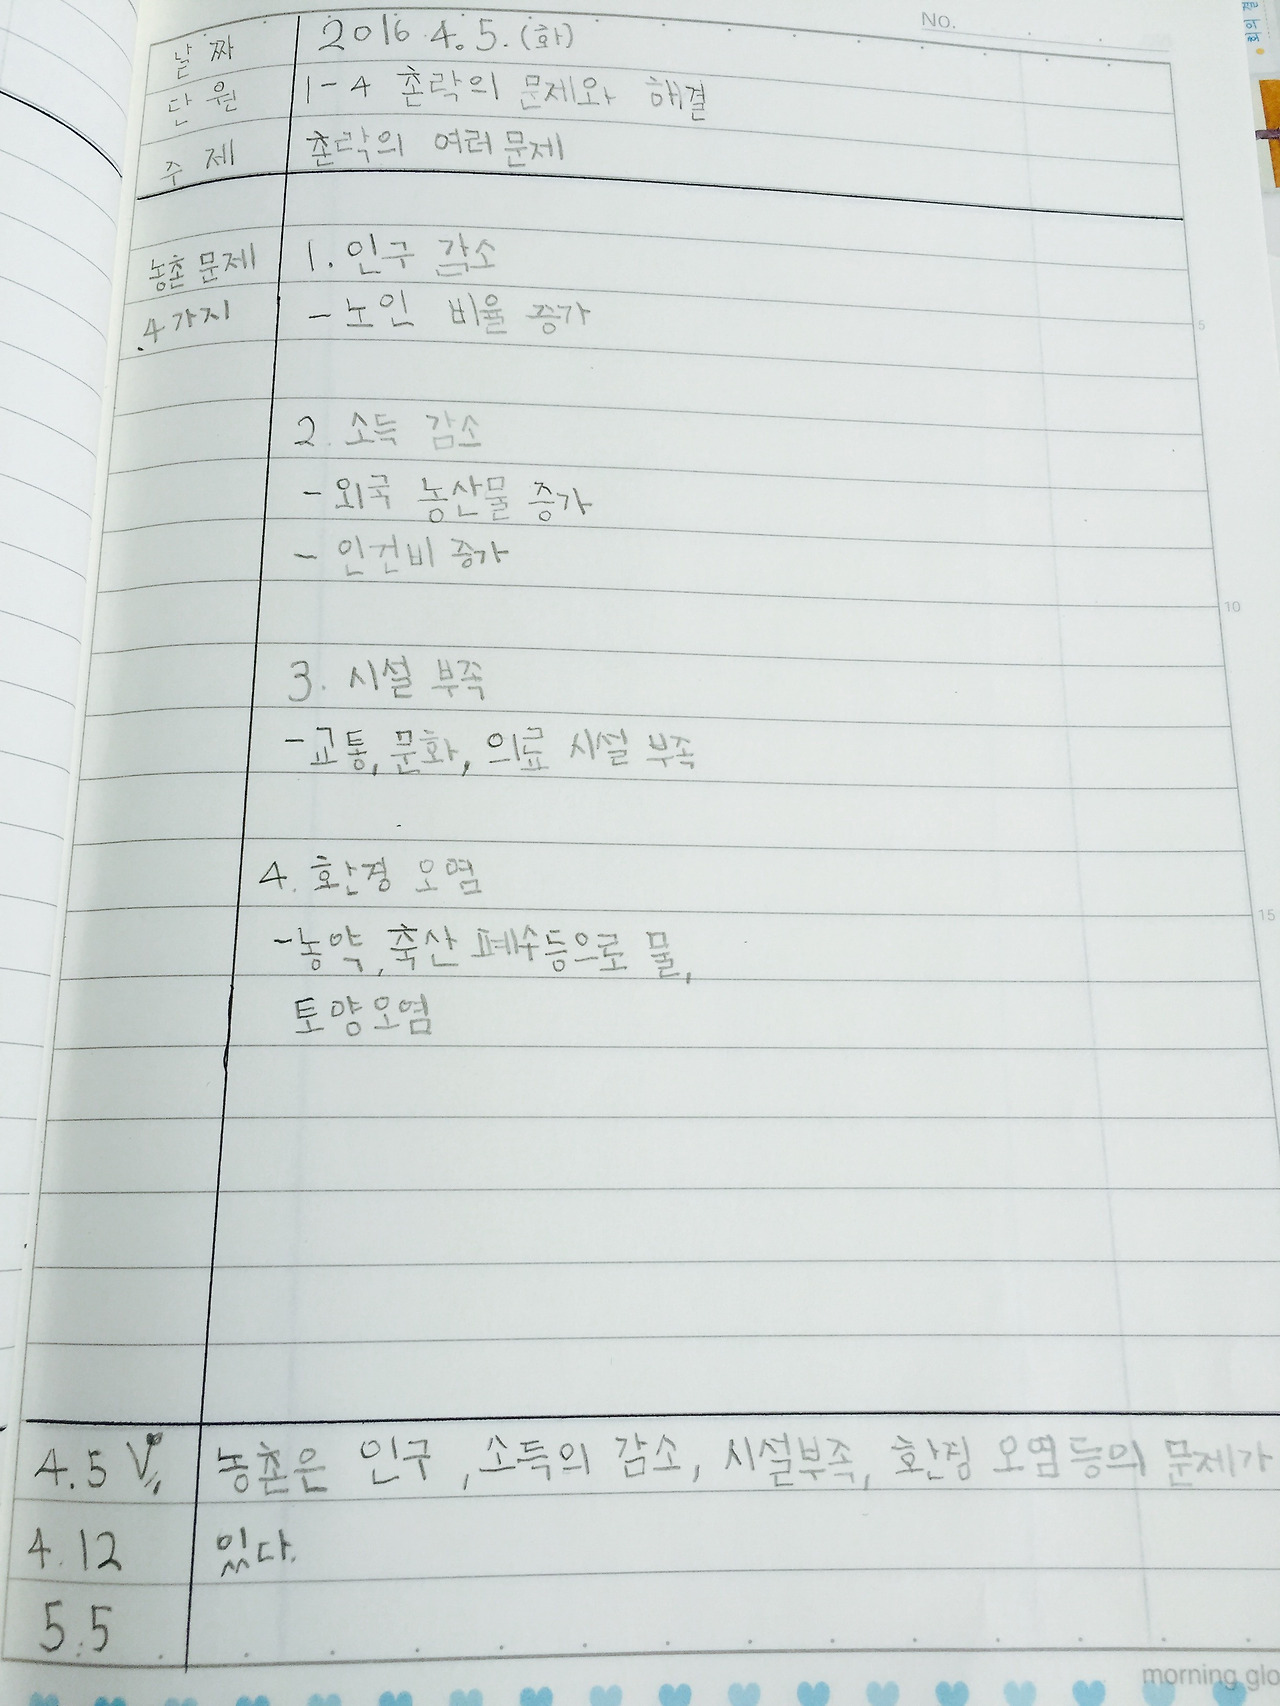 No.
날짜 2016. 4. 5. (화)
단원 1-4 촌락의 문제와 해결
주제 촌락의 여러 문제
농촌 문제 1. 인구 감소
4가지 - 노인 비율 증가
5
2. 소득 감소
- 외국 농산물 증가
- 인건비 증가
10
3. 시설 부족
- 교통, 문화, 의료 시설 부족
4. 환경 오염
15
- 농약, 축산 폐수등으로 물,
토양오염
4.5 V 농촌은 인구, 소득의 감소, 시설부족, 환경 오염 등의 문제가
4.12 있다.
5.5
morning glo